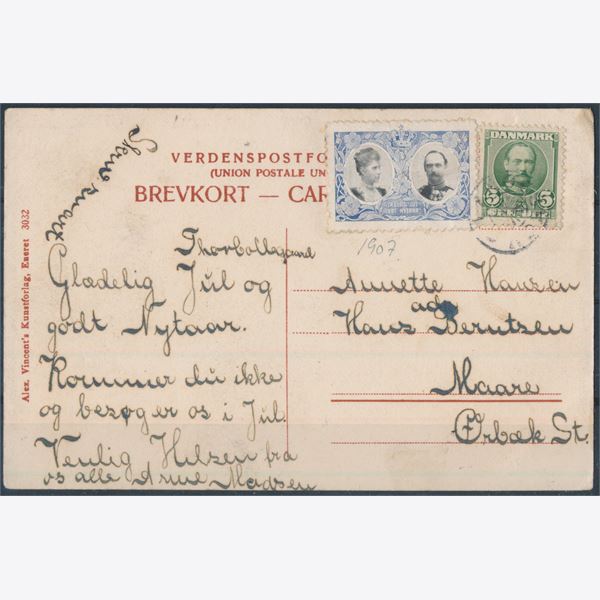 VERDENSPOSTFO
(UNION POSTALE UN
BREVKORT — CAR
DANMARK
5 5
1907.
Alex. Vincent's Kunstforlag, Eneret 3032
Skriv snart
Thorballegaard
Glædelig Jul og
godt Nytaar.
Kommer du ikke
og besøger os i Jul.
Venlig Hilsen fra
os alle Arne Madsen
Annette Hansen
adr
Hans Berntsen
Maare
Ørbæk St.